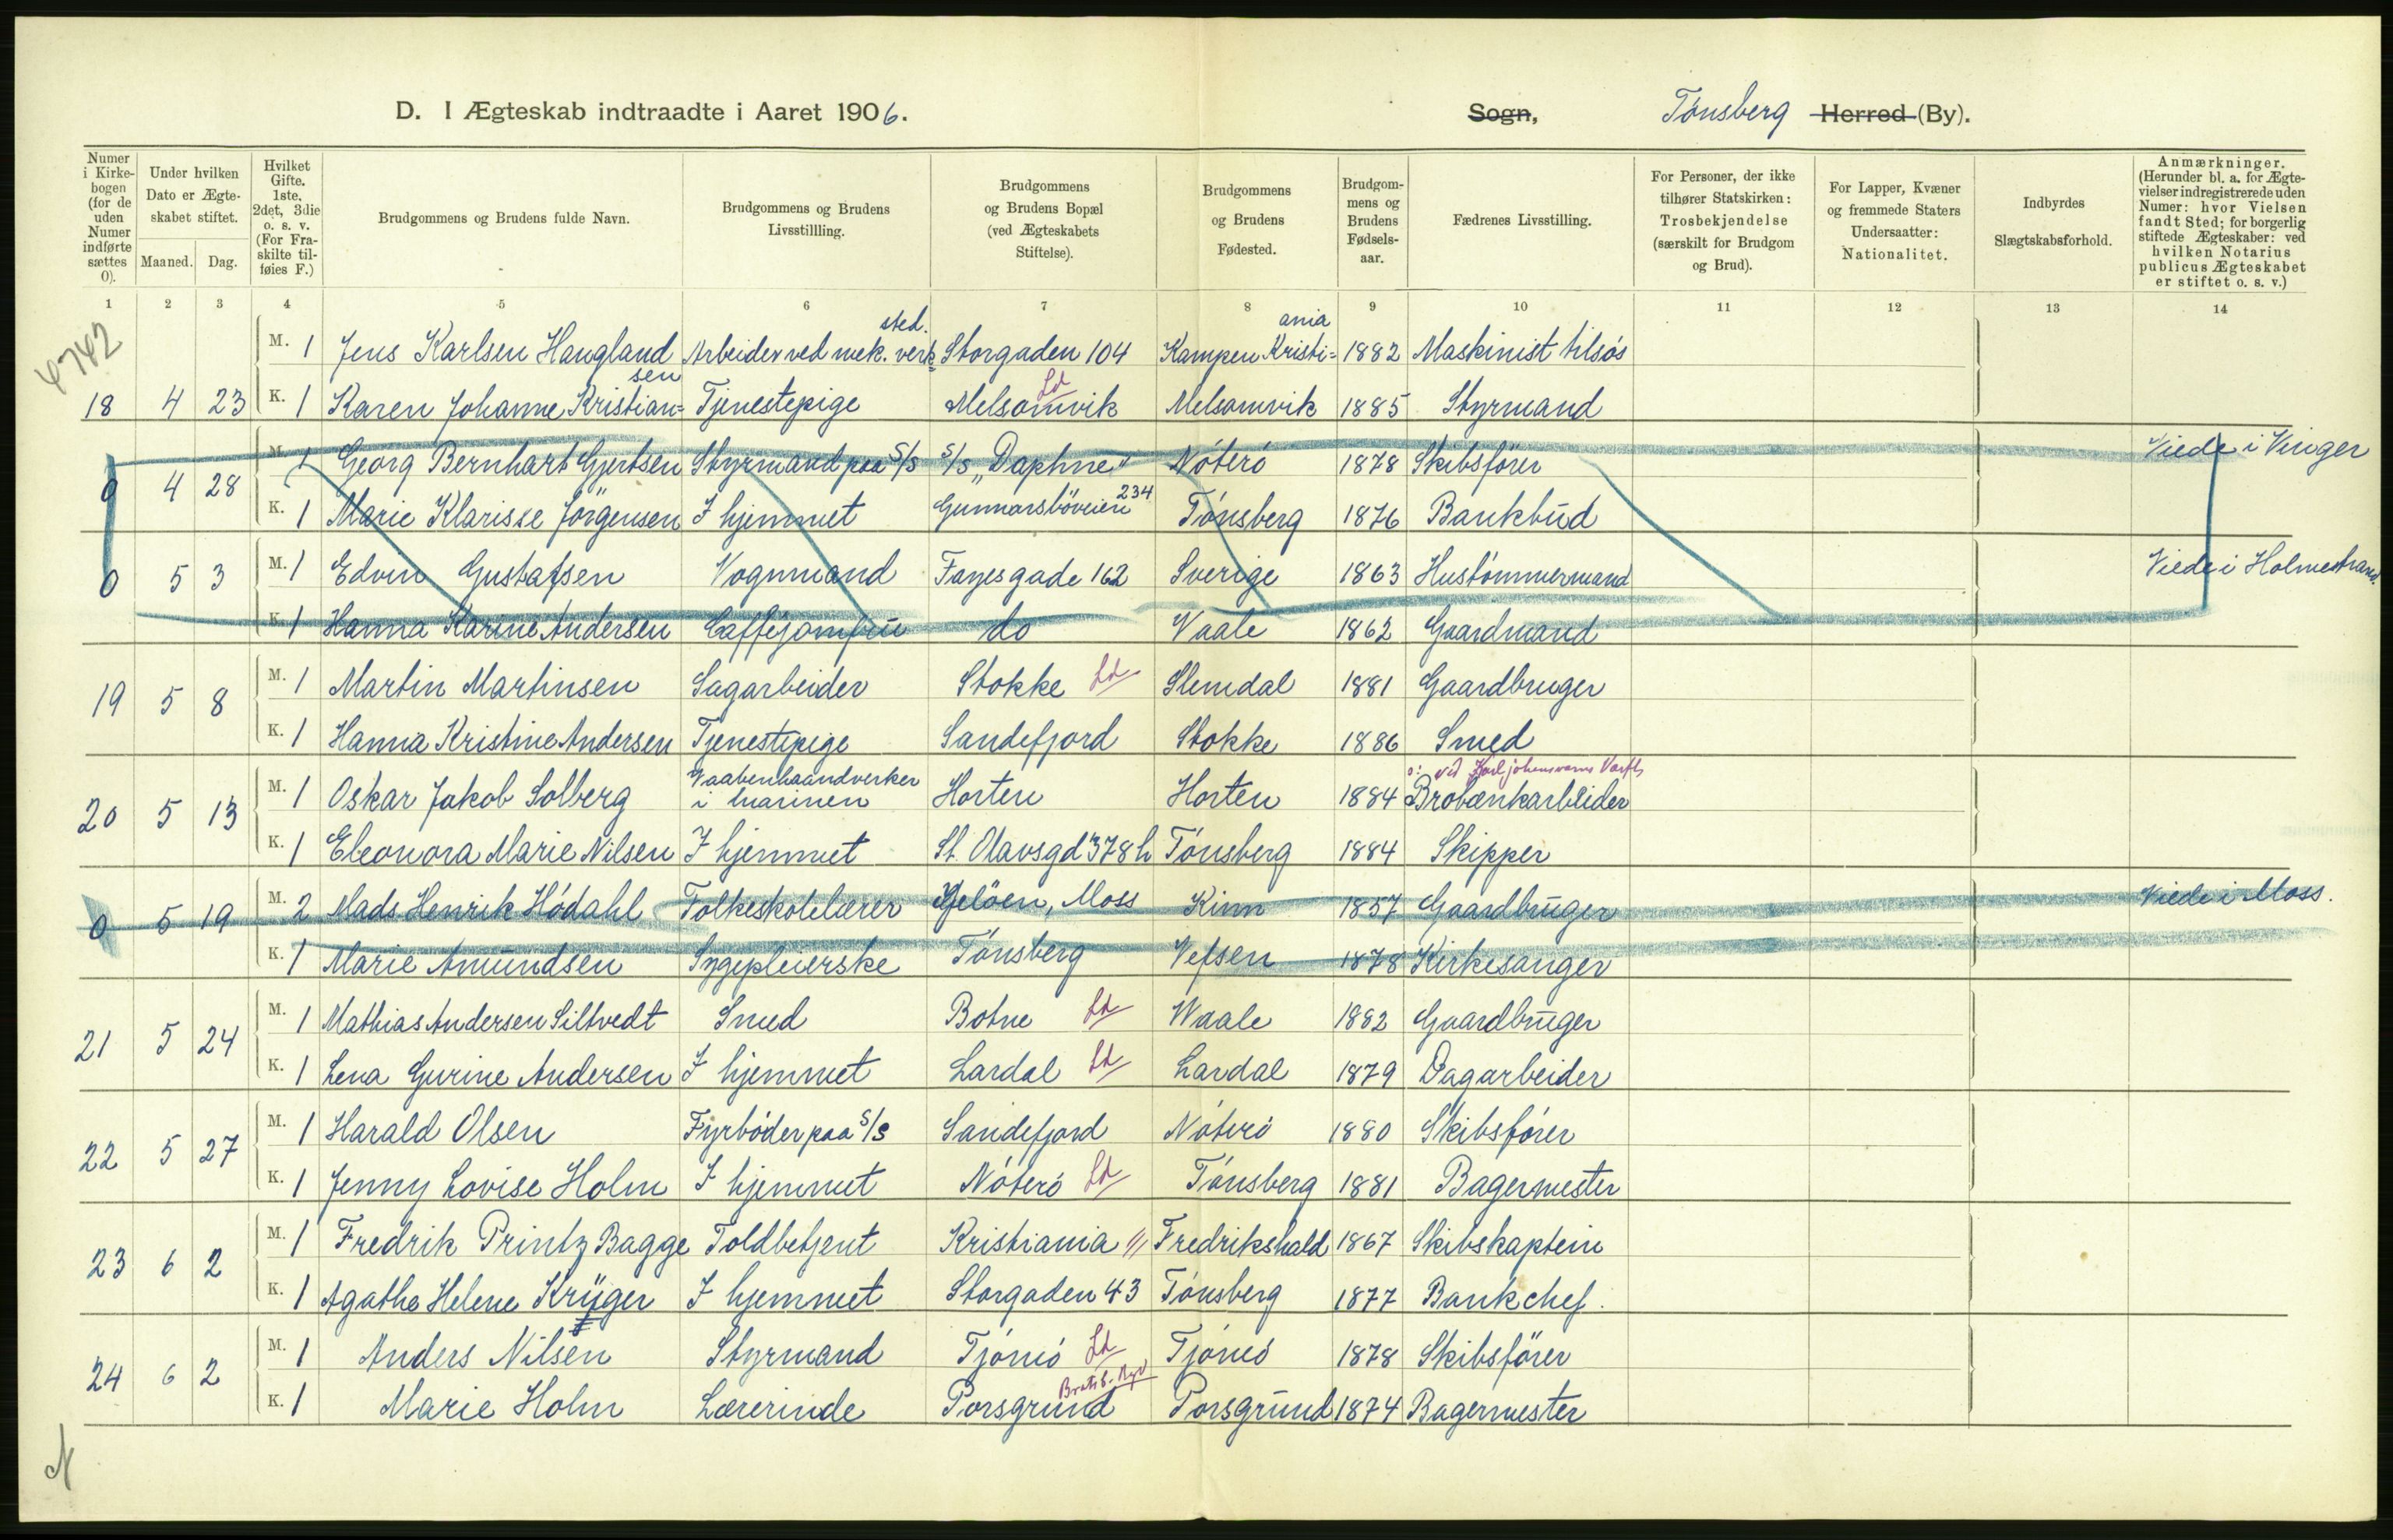 D. I Ægteskab indtraadte i Aaret 1906.
Sogn, Tønsberg Herred (By).
Numer i Kirke-bogen (for de uden Numer indførte sættes 0).
Under hvilken Dato er Ægte-skabet stiftet.
Maaned. Dag.
Hvilket Gifte. 1ste. 2det, 3die o. s. v. (For Fra-skilte til-føies F.)
Brudgommens og Brudens fulde Navn.
Brudgommens og Brudens Livsstillling.
Brudgommens og Brudens Bopæl (ved Ægteskabets Stiftelse).
Brudgommens og Brudens Fødested.
Brudgom-mens og Brudens Fødsels-aar.
Fædrenes Livsstilling.
For Personer, der ikke tilhører Statskirken: Trosbekjendelse (særskilt for Brudgom og Brud).
For Lapper, Kvæner og fremmede Staters Undersaatter: Nationalitet.
Indbyrdes Slægtskabsforhold.
Anmærkninger. (Herunder bl. a. for Ægte-vielser indregistrerede uden Numer: hvor Vielsen fandt Sted; for borgerlig stiftede Ægteskaber: ved hvilken Notarius publicus Ægteskabet er stiftet o. s. v.)
1 2 3 4 5 6 7 8 9 10 11 12 13 14
4742
M. 1 Jens Karlsen Haugland Arbeider ved mek. verk=sted. Storgaden 104 Kampen Kristi=ania 1882 Maskinist tilsøs
18 4 23 K. 1 Karen Johanne Kristian=sen Tjenestepige Melsomvik Ld Melsomvik 1885 Styrmand
M. 1 Georg Bernhart Gjertsen Styrmand paa S/S S/S „Daphne" Nøterø 1878 Skibsfører Viede i Vinger
0 4 28 K. 1 Marie Klarisse Jörgensen I hjemmet Gunnarsböveien 234 Tønsberg 1876 Bankbud
0 5 3 M. 1 Edvin Gustafsen Vognmand Fayesgade 162 Sverige 1863 Hustømmermand Viede i Holmestrand.
K. 1 Hanna Karine Andersen Caffejomfru do Vaale 1862 Gaardmand
M. 1 Martin Martinsen Sagarbeider Stokke Ld Slemdal 1881 Gaardbruger
19 5 8 K. 1 Hanna Kristine Andersen Tjenestepige Sandefjord Stokke 1886 Smed
M. 1 Oskar Jakob Solberg Vaabenhaandverker i marinen Horten Horten 1884 Brobænkarbeider
ɔ: ved Karljohansværns Værft
20 5 13 K. 1 Eleonora Marie Nilsen I hjemmet St. Olavsgd 378 h Tønsberg 1884 Skipper
0 5 19 M. 2 Mads Henrik Hødahl Folkeskolelærer Gjelöen, Moss Kinn 1857 Gaardbruger Viede i Moss.
K. 1 Marie Amundsen Sygepleierske Tønsberg Vefsen 1878 Kirkesanger
M. 1 Mathias Andersen Siltvedt Smed Botne Ld Waale 1882 Gaardbruger
21 5 24 K. 1 Lena Gurine Andersen I hjemmet Lardal Ld Lardal 1879 Dagarbeider
M. 1 Harald Olsen Fyrbøder paa S/S Sandefjord Nøterø 1880 Skibsfører
22 5 27 K. 1 Jenny Lovise Holm I hjemmet Nøterø Ld Tønsberg 1881 Bagermester
M. 1 Fredrik Printz Bagge Toldbetjent Kristiania // Fredrikshald 1867 Skibskaptein
23 6 2 K. 1 Agathe Helene Krüger I hjemmet Storgaden 43 Tønsberg 1877 Bankchef.
M. 1 Anders Nilsen Styrmand Tjømø Ld Tjømø 1878 Skibsfører
24 6 2 K. 1 Marie Holm Lærerinde Porsgrund Porsgrund 1874 Bagermester
N